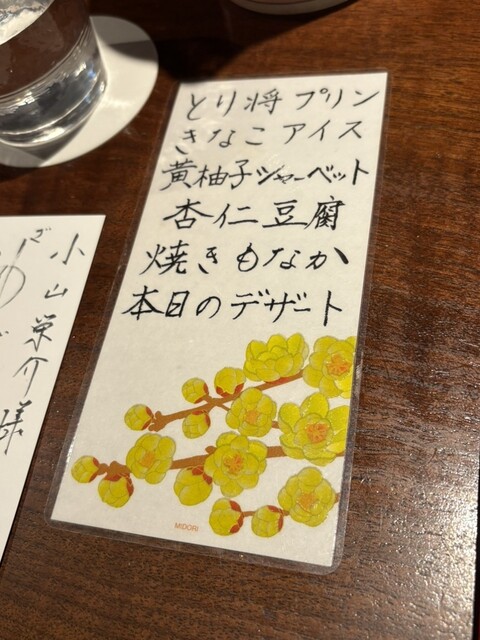 とり将プリン
きなこアイス
黄柚子シャーベット
杏仁豆腐
焼きもなか
本日のデザート
MIDORI
小山栄介様